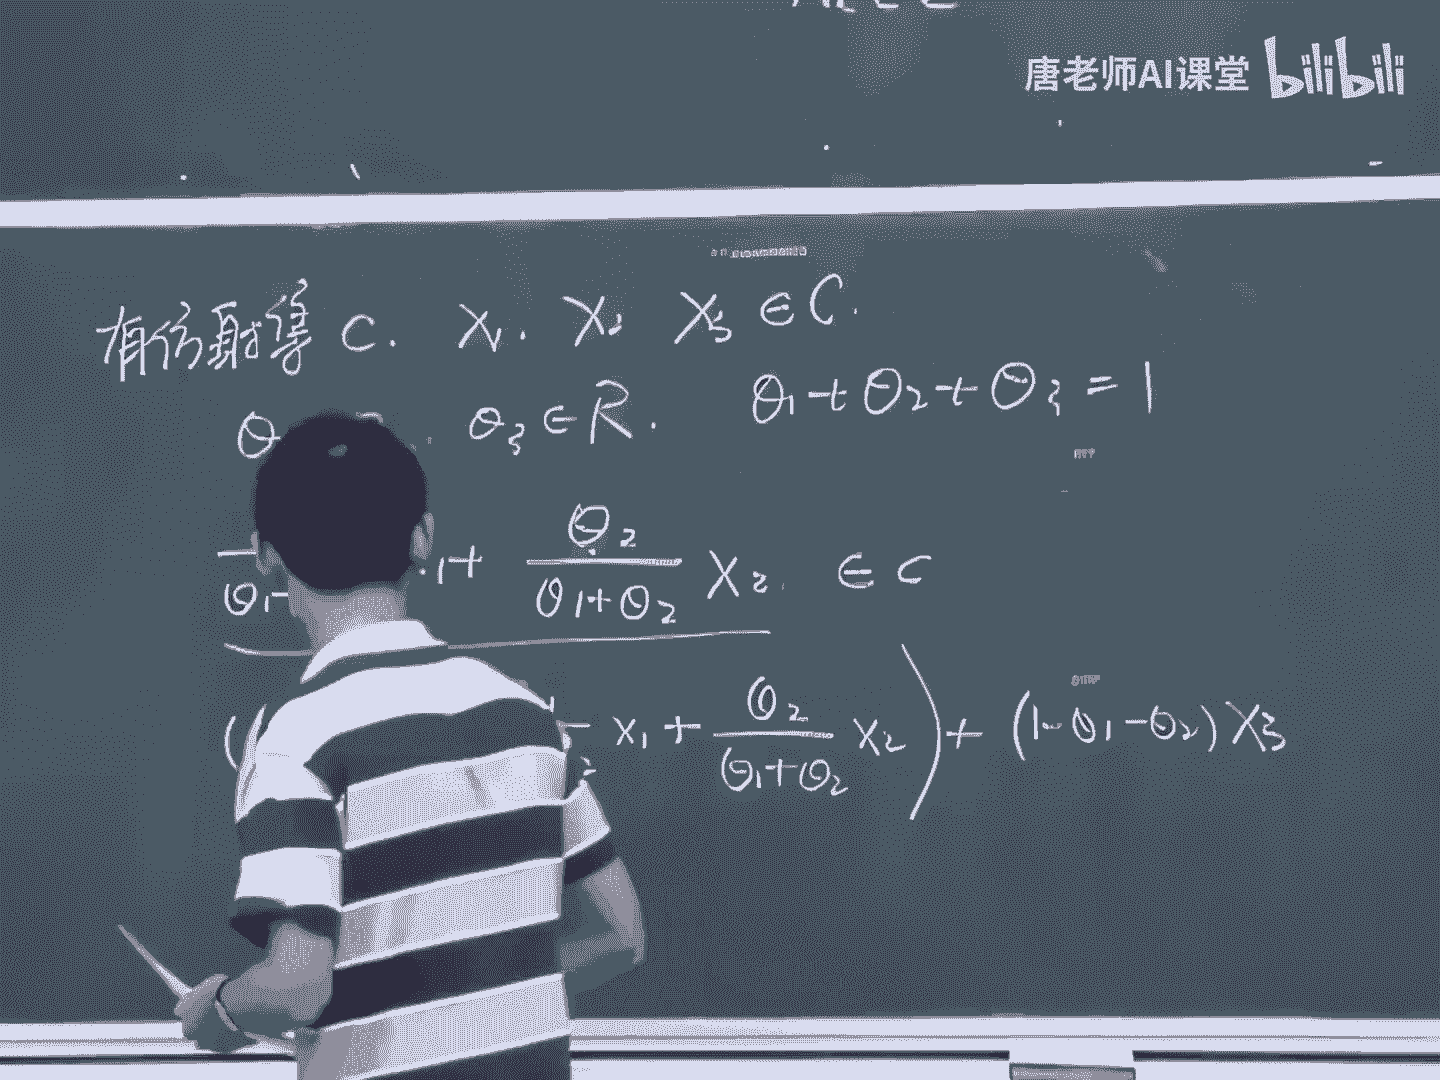 唐老师AI课堂 bilibili
有仿射集 C. X₁. X₂ X₃ ∈ C.
θ θ₃ ∈ R. θ₁+θ₂+θ₃ = 1
θ₁+ ₁+ θ₂/(θ₁+θ₂) X₂. ∈ C
( x₁ + θ₂/(θ₁+θ₂) x₂ ) + (1-θ₁-θ₂) X₃